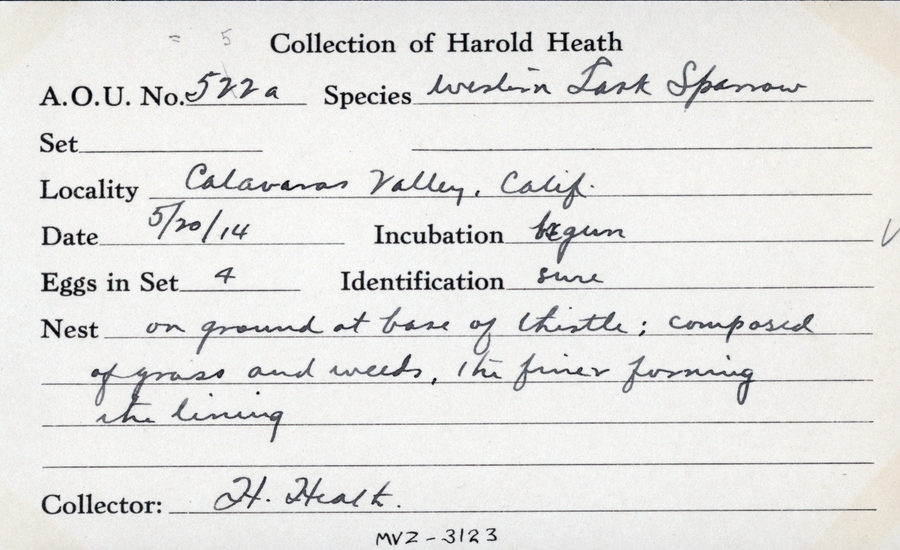 = 5
Collection of Harold Heath
A.O.U. No. 522a Species Western Lark Sparrow
Set
Locality Calavaras Valley, Calif.
Date 5/20/14 Incubation begun
Eggs in Set 4 Identification sure
Nest on ground at base of thistle; composed
of grass and weeds, the finer forming
the lining
Collector: H. Heath.
MVZ-3123